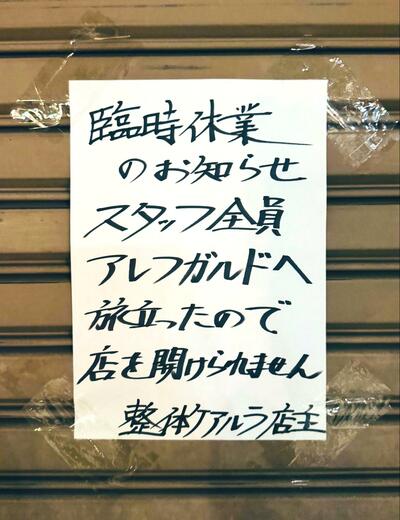 臨時休業
のお知らせ
スタッフ全員
アレフガルドへ
旅立ったので
店を開けられません
整体ケアルラ店主